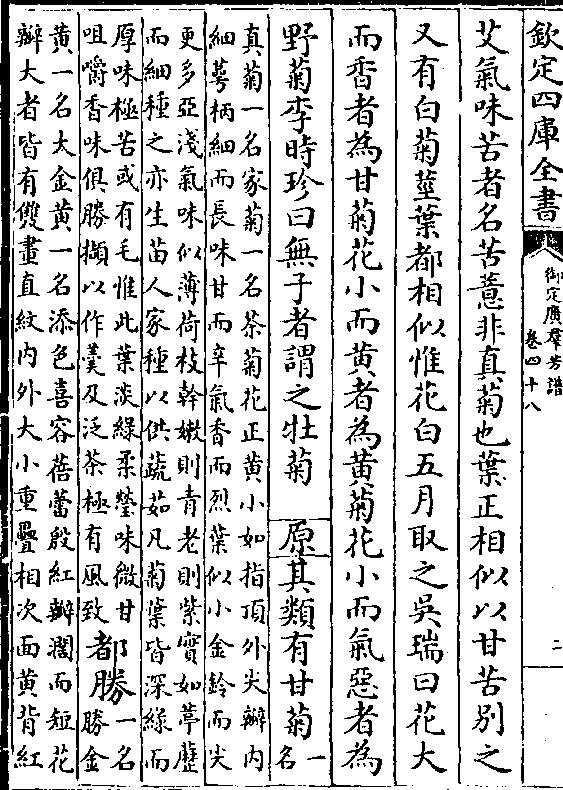 欽定四庫全書
御定廣羣芳譜
卷四十八
二
艾氣味苦者名苦薏非真菊也葉正相似以甘苦別之
又有白菊莖葉都相似惟花白五月取之吳瑞曰花大
而香者為甘菊花小而黃者為黃菊花小而氣惡者為
野菊李時珍曰無子者謂之牡菊 原其類有甘菊一
名
真菊一名家菊一名茶菊花正黃小如指頂外尖瓣內
細萼柄細而長味甘而辛氣香而烈葉似小金鈴而尖
更多亞淺氣味似薄荷枝幹嫩則青老則紫實如葶藶
而細種之亦生苗人家種以供蔬茹凡菊葉皆深綠而
厚味極苦或有毛惟此葉淡綠柔瑩味微甘
咀嚼香味俱勝擷以作羹及泛茶極有風致
都勝一名
勝金
黃一名大金黃一名添色喜容蓓蕾殷紅瓣闊而短花
瓣大者皆有雙畫直紋內外大小重疊相次面黃背紅